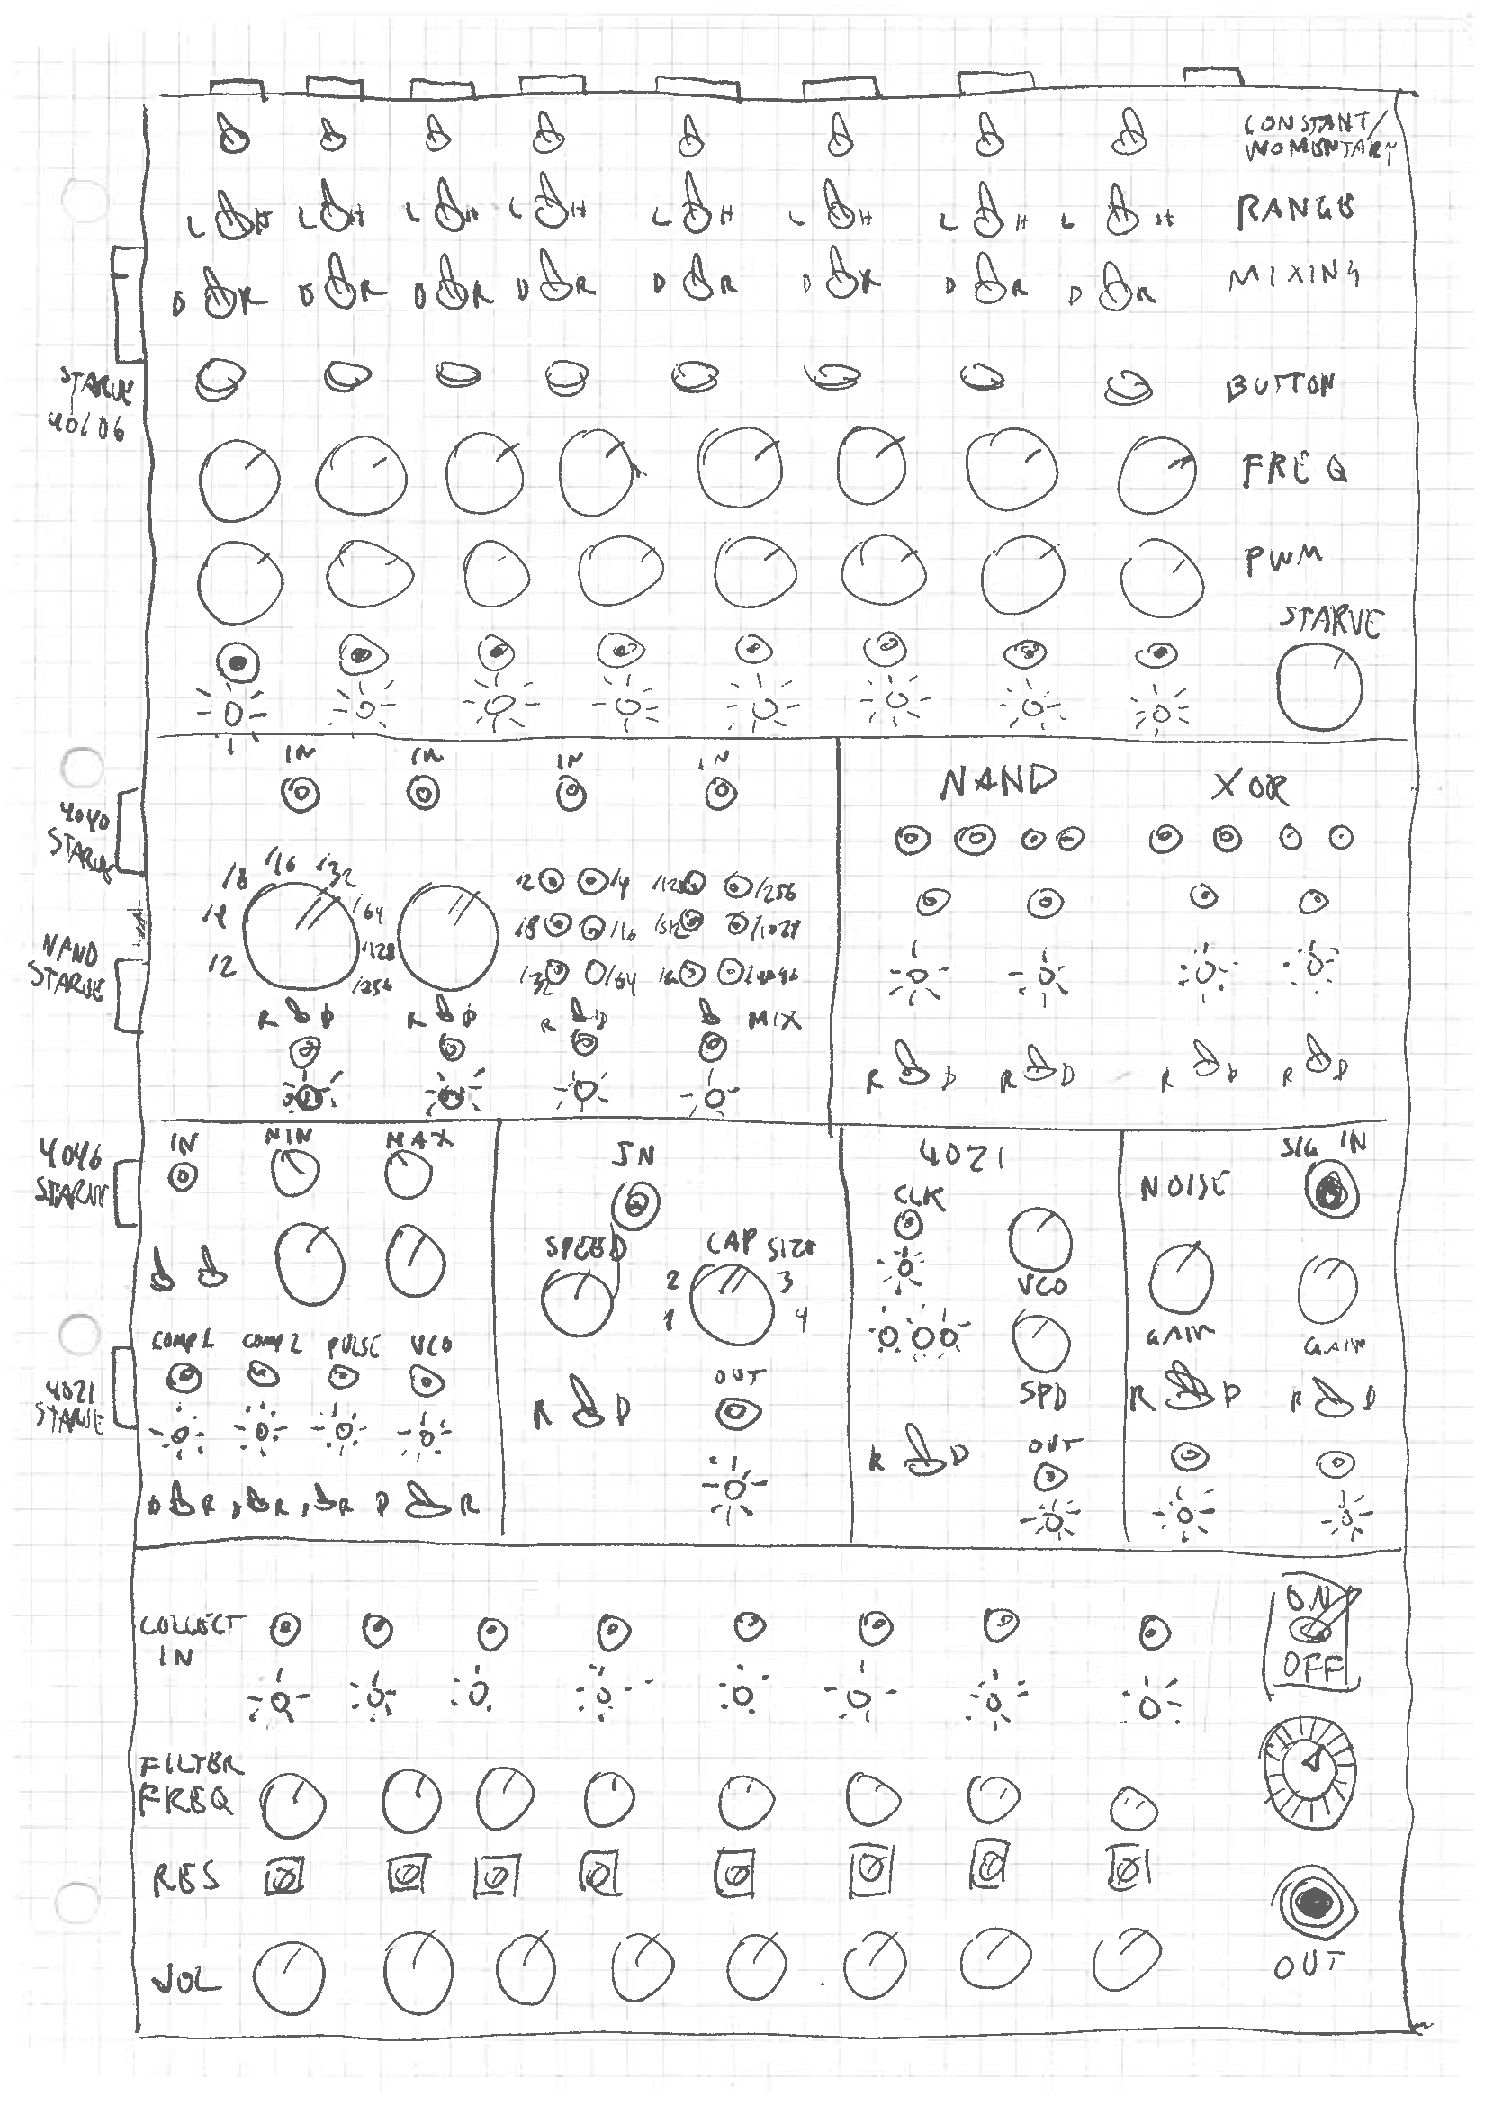 CONSTANT/
MOMENTARY
L H L H L H L H L H L H L H L H RANGE
D R D R D R D R D R D R D R D R MIXING
STARVE
40106
BUTTON
FREQ
PWM
STARVE
IN IN IN IN
NAND XOR
4040
STARVE
/2 /4 /8 /16 /32 /64 /128 /256
/2 /4 /128 /256
/8 /16 /512 /1024
/32 /64
NAND
STARVE
R D R D R D MIX
R D R D R D R D
4046
STARVE
IN MIN MAX
COMP1 COMP2 PULSE VCO
4021
STARVE
D R , R , R D R
IN
SPEED CAP SIZE
1 2 3 4
OUT
R D
4021
CLK
VCO
SPD
R D OUT
NOISE SIG IN
GAIN GAIN
R D R D
COLLECT
IN
ON
OFF
FILTER
FREQ
RES
VOL
OUT